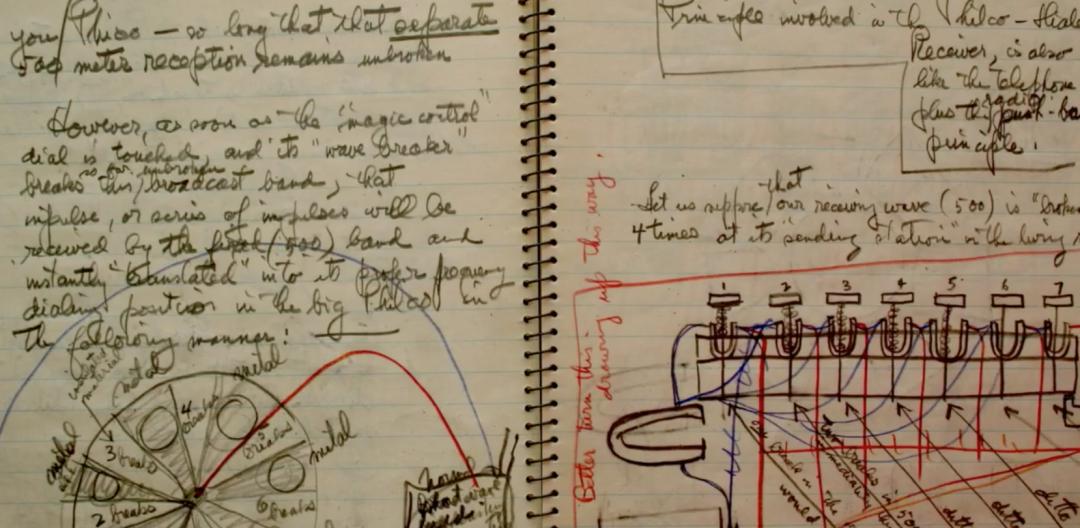 you Philco — so long that that separate
500 meter reception remains unbroken
However, as soon as the "magic control"
dial is touched, and its "wave breaker"
so far unbroken
breaks this, broadcast band, that
impulse, or series of impulses will be
received by the fixed (500) band and
instantly "translated" into its proper frequency
dialing position in the big Philco in
the following manner:
insulated material
metal
metal
metal
metal
4 breaks
3 breaks
5 breaks
2 breaks
6 breaks
Principle involved in the Philco –
Receiver, is also
like the telephone
radio
plus the push-
principle.
Better turn this drawing up this way.
that
Let us suppose, our receiving wave (500) is "broken
4 times at its "sending station" in the living
1 2 3 4 5 6 7
would
ditto
ditto
ditto